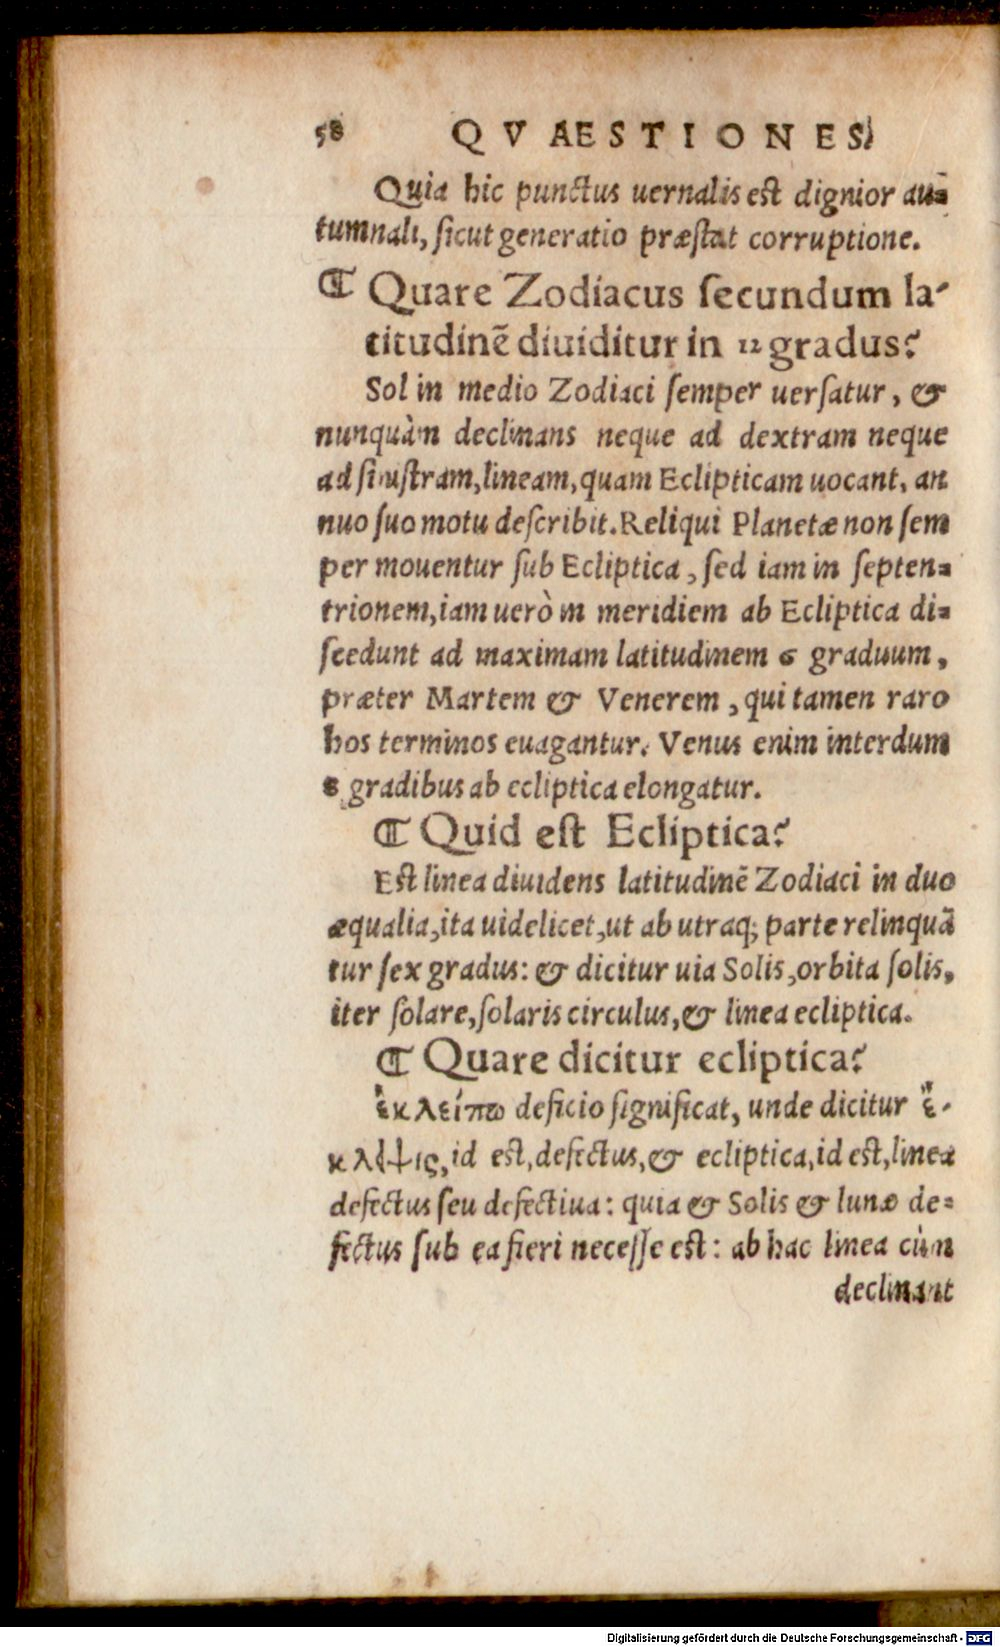 58 QVAESTIONES
Quia hic punctus uernalis est dignior au=
tumnali, sicut generatio præstat corruptione.
¶ Quare Zodiacus secundum la-
titudinē diuiditur in 12 gradus?
Sol in medio Zodiaci semper uersatur, &
nunquàm declinans neque ad dextram neque
ad sinistram, lineam, quam Eclipticam uocant, an
nuo suo motu describit. Reliqui Planetæ non sem
per mouentur sub Ecliptica, sed iam in septen=
trionem, iam uerò in meridiem ab Ecliptica di=
scedunt ad maximam latitudinem 6 graduum,
præter Martem & Venerem, qui tamen raro
hos terminos euagantur. Venus enim interdum
8 gradibus ab ecliptica elongatur.
¶ Quid est Ecliptica?
Est linea diuidens latitudinē Zodiaci in duo
æqualia, ita uidelicet, ut ab utraq; parte relinquā
tur sex gradus: & dicitur uia Solis, orbita solis,
iter solare, solaris circulus, & linea ecliptica.
¶ Quare dicitur ecliptica?
ἐκλείπω deficio significat, unde dicitur ἔ-
κλειψις, id est, defectus, & ecliptica, id est, linea
defectus seu defectiua: quia & Solis & lunæ de=
fectus sub ea fieri necesse est: ab hac linea cùm
declinant
Digitalisierung gefördert durch die Deutsche Forschungsgemeinschaft - DFG